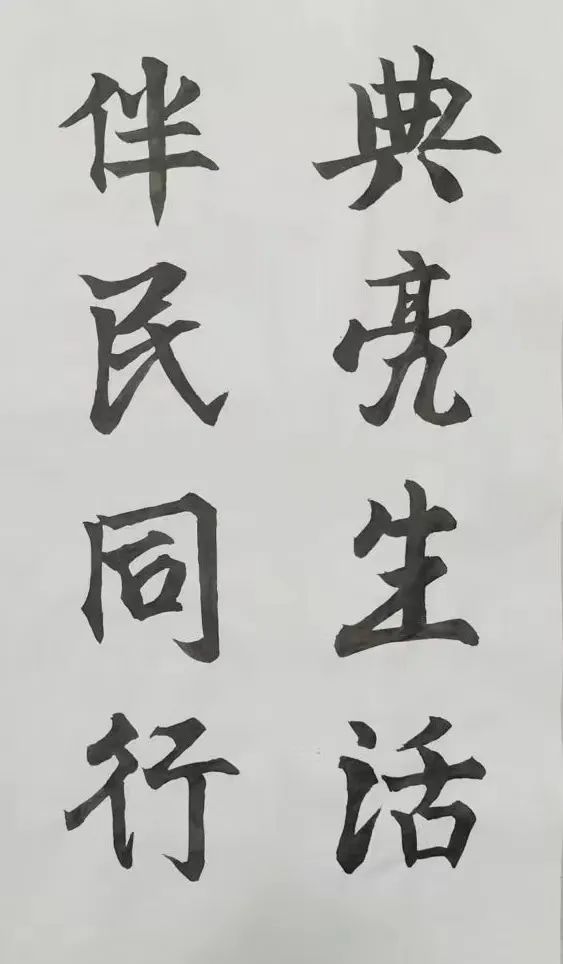 典亮生活
伴民同行